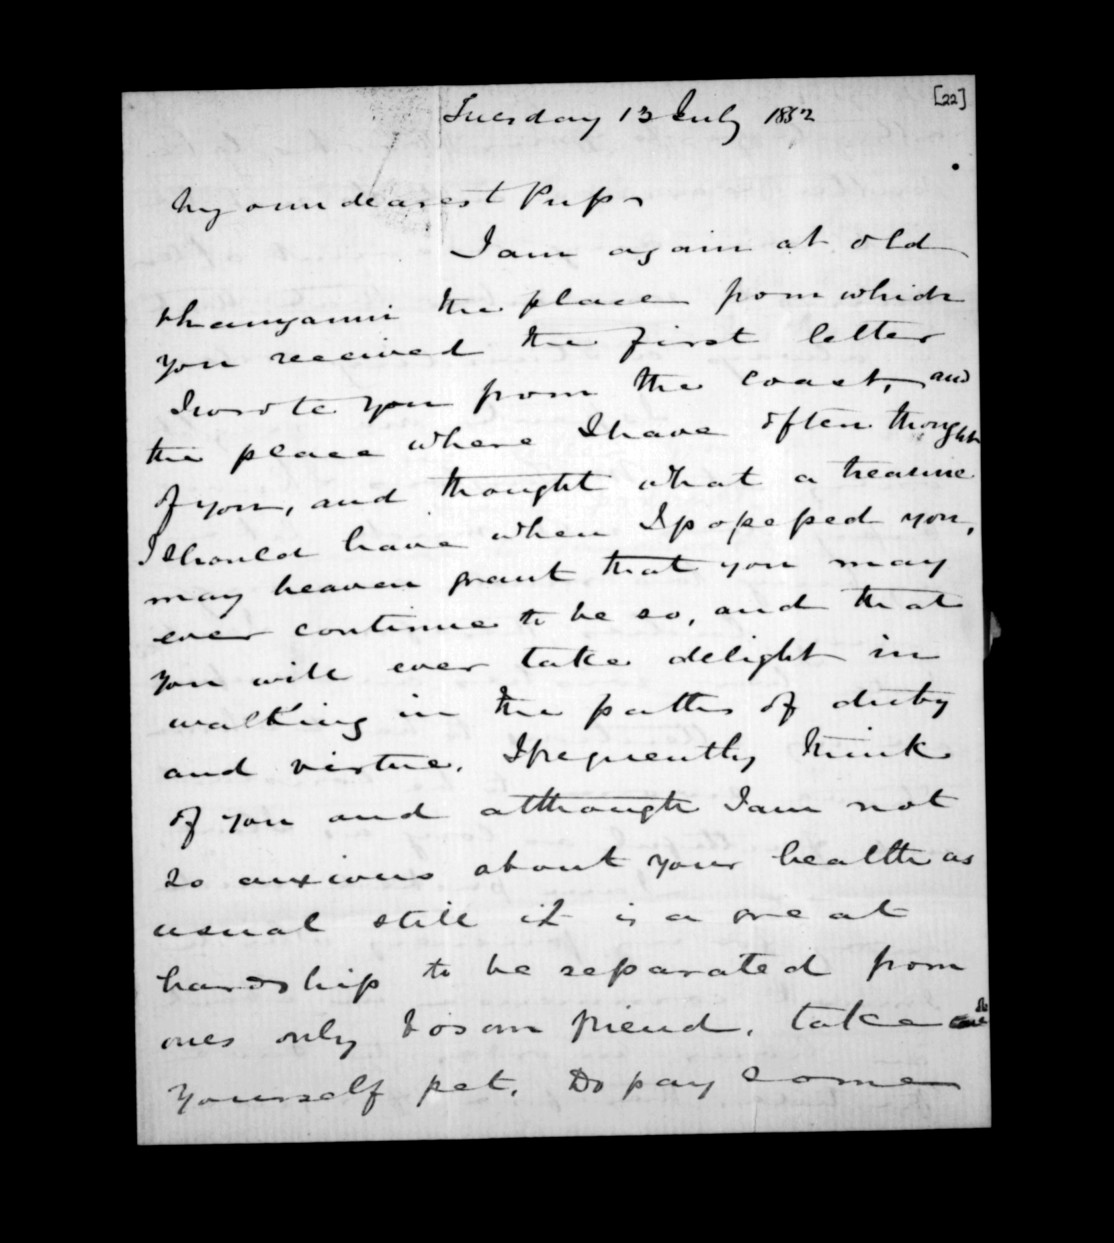 [22]
Tuesday 13 July 1852
My own dearest Pups
I am again at old
the place from which
you received the first letter
I wrote you from the coast, and
the place where I have often thought
of you, and thought what a treasure
I should have when I possessed you,
may heaven grant that you may
ever continue to be so, and that
you will ever take delight in
walking in the paths of duty
and virtue. I frequently think
of you and although I am not
so anxious about your health as
usual still it is a great
hardship to be separated from
ones only bosom friend. take
yourself pet. Do pay some